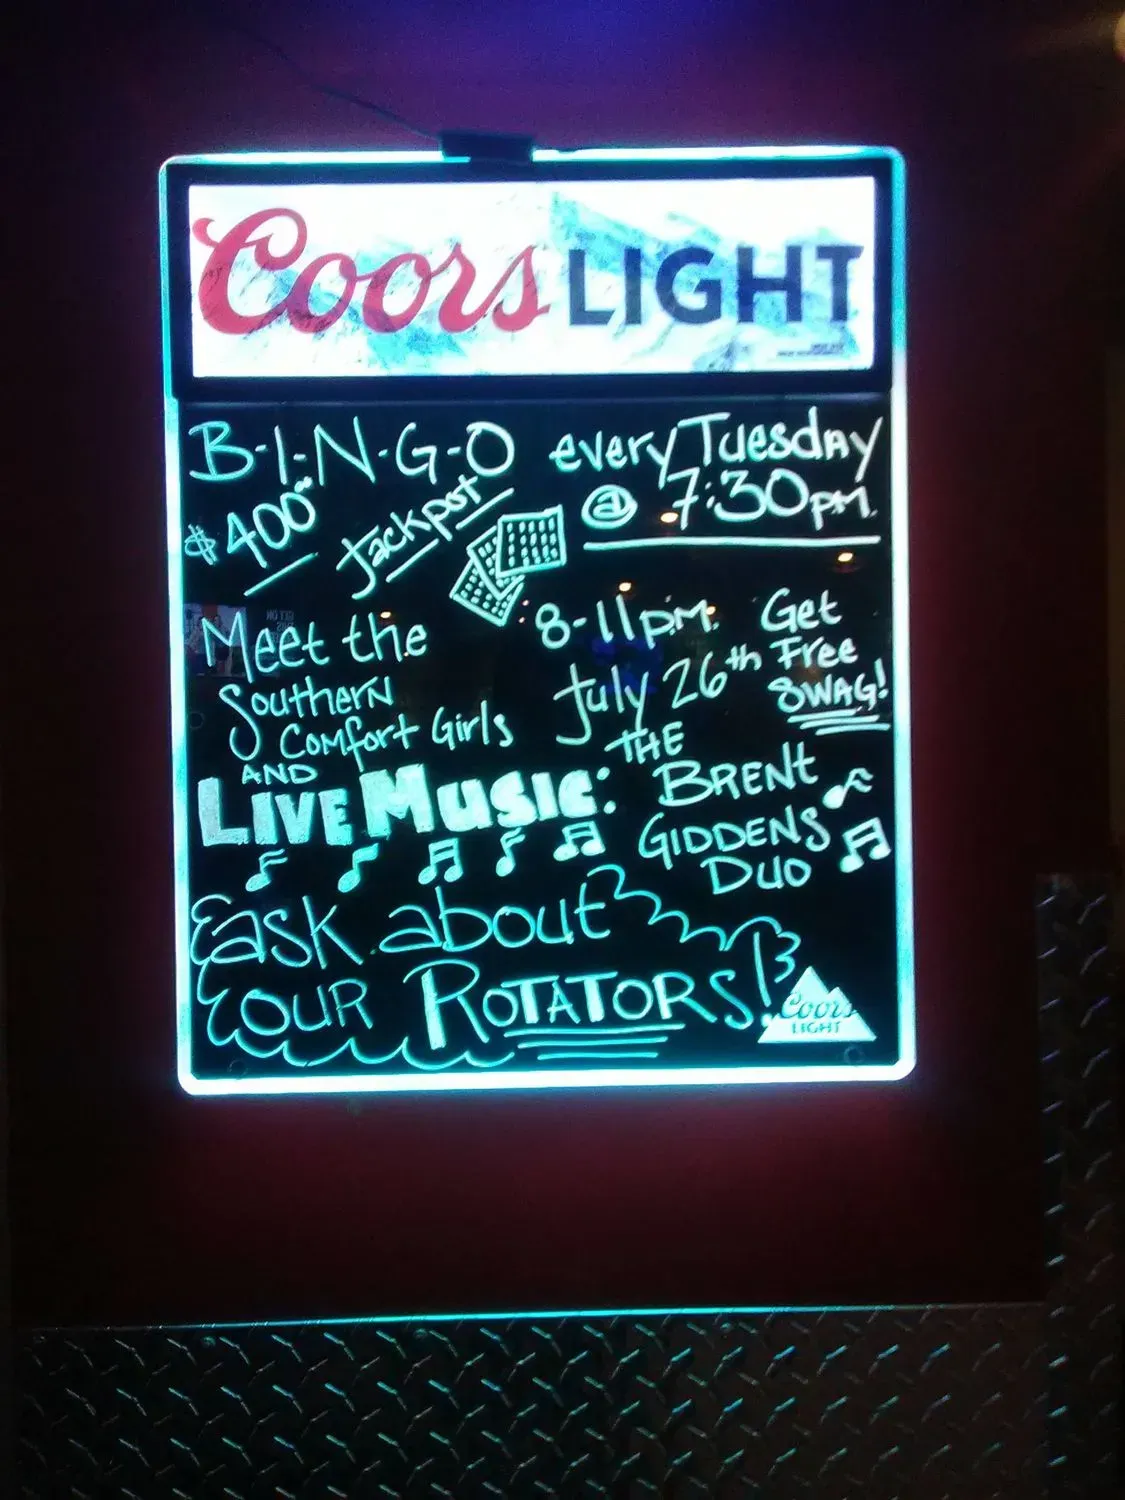 Coors LIGHT
B-I-N-G-O every Tuesday
$400 Jackpot @ 7:30pm
Meet the
Southern
Comfort Girls
8-11pm
July 26th
Get
Free
SWAG!
AND
LIVE MUSIC:
THE
BRENt
GIDDENS
DUO
ask about
our ROTATORS!
Coors
LIGHT